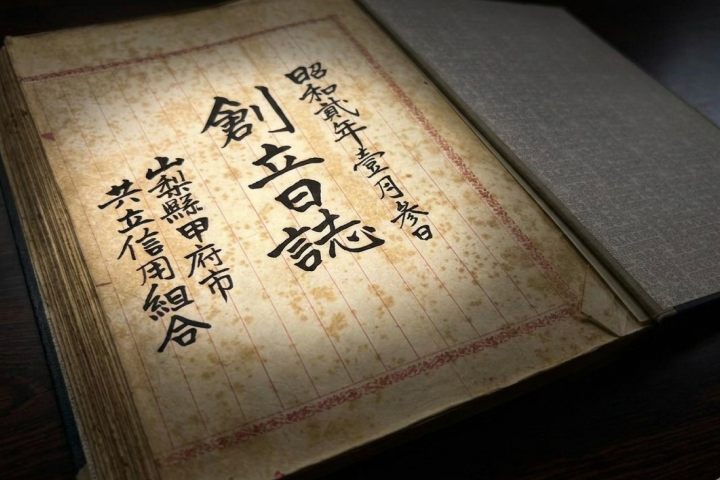 昭和貳年壹月参日
創立日誌
山梨縣甲府市
共立信用組合